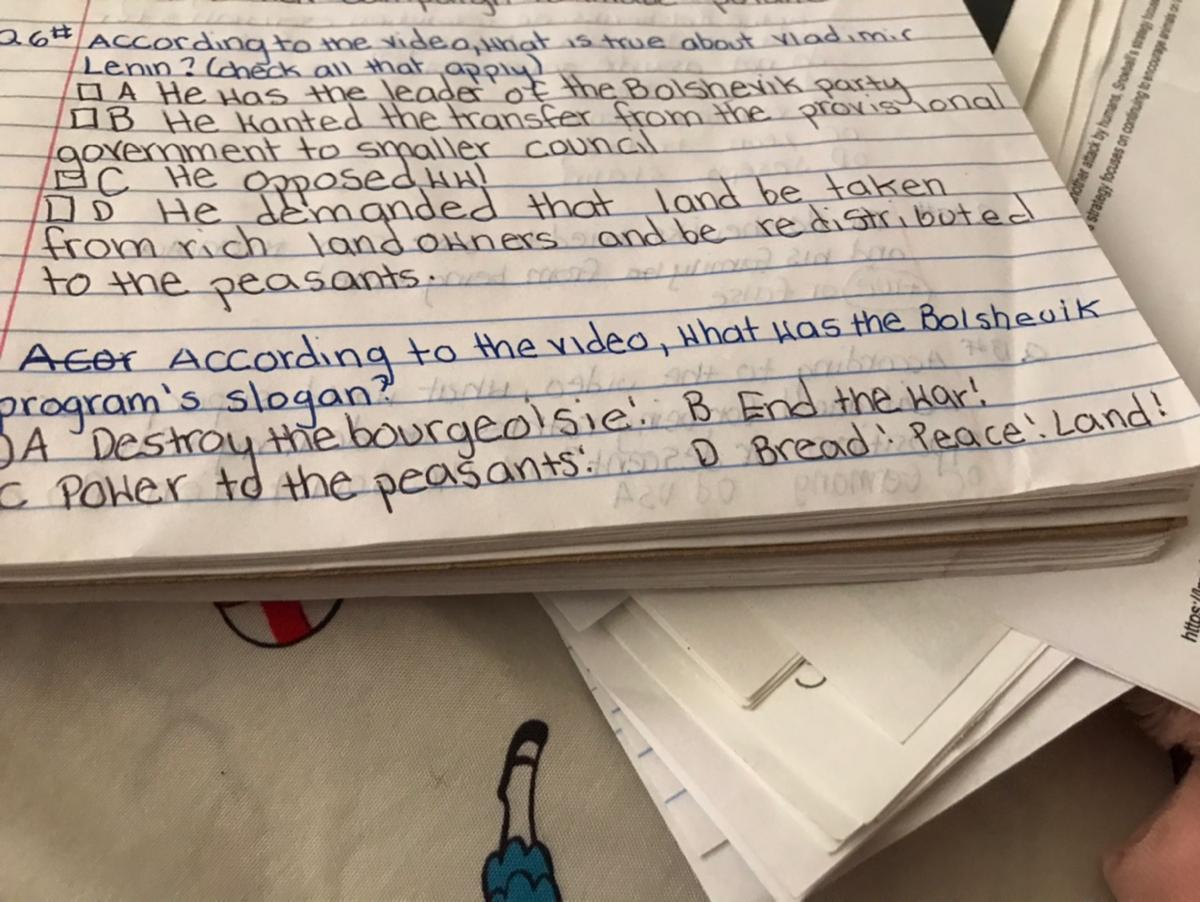 26# According to the video, what is true about Vladimir
Lenin? (check all that apply)
A He was the leader of the Bolshevik party
B He wanted the transfer from the provisional
government to smaller council
C He opposed WW1
D He demanded that land be taken
from rich landowners and be redistributed
to the peasants.
Acor According to the video, what was the Bolshevik
program's slogan?
A Destroy the bourgeoisie! B End the war!
C Power to the peasants! D Bread! Peace! Land!
another attack by humans. Snowball's strategy focuses
strategy focuses on continuing to encourage animals on
https://